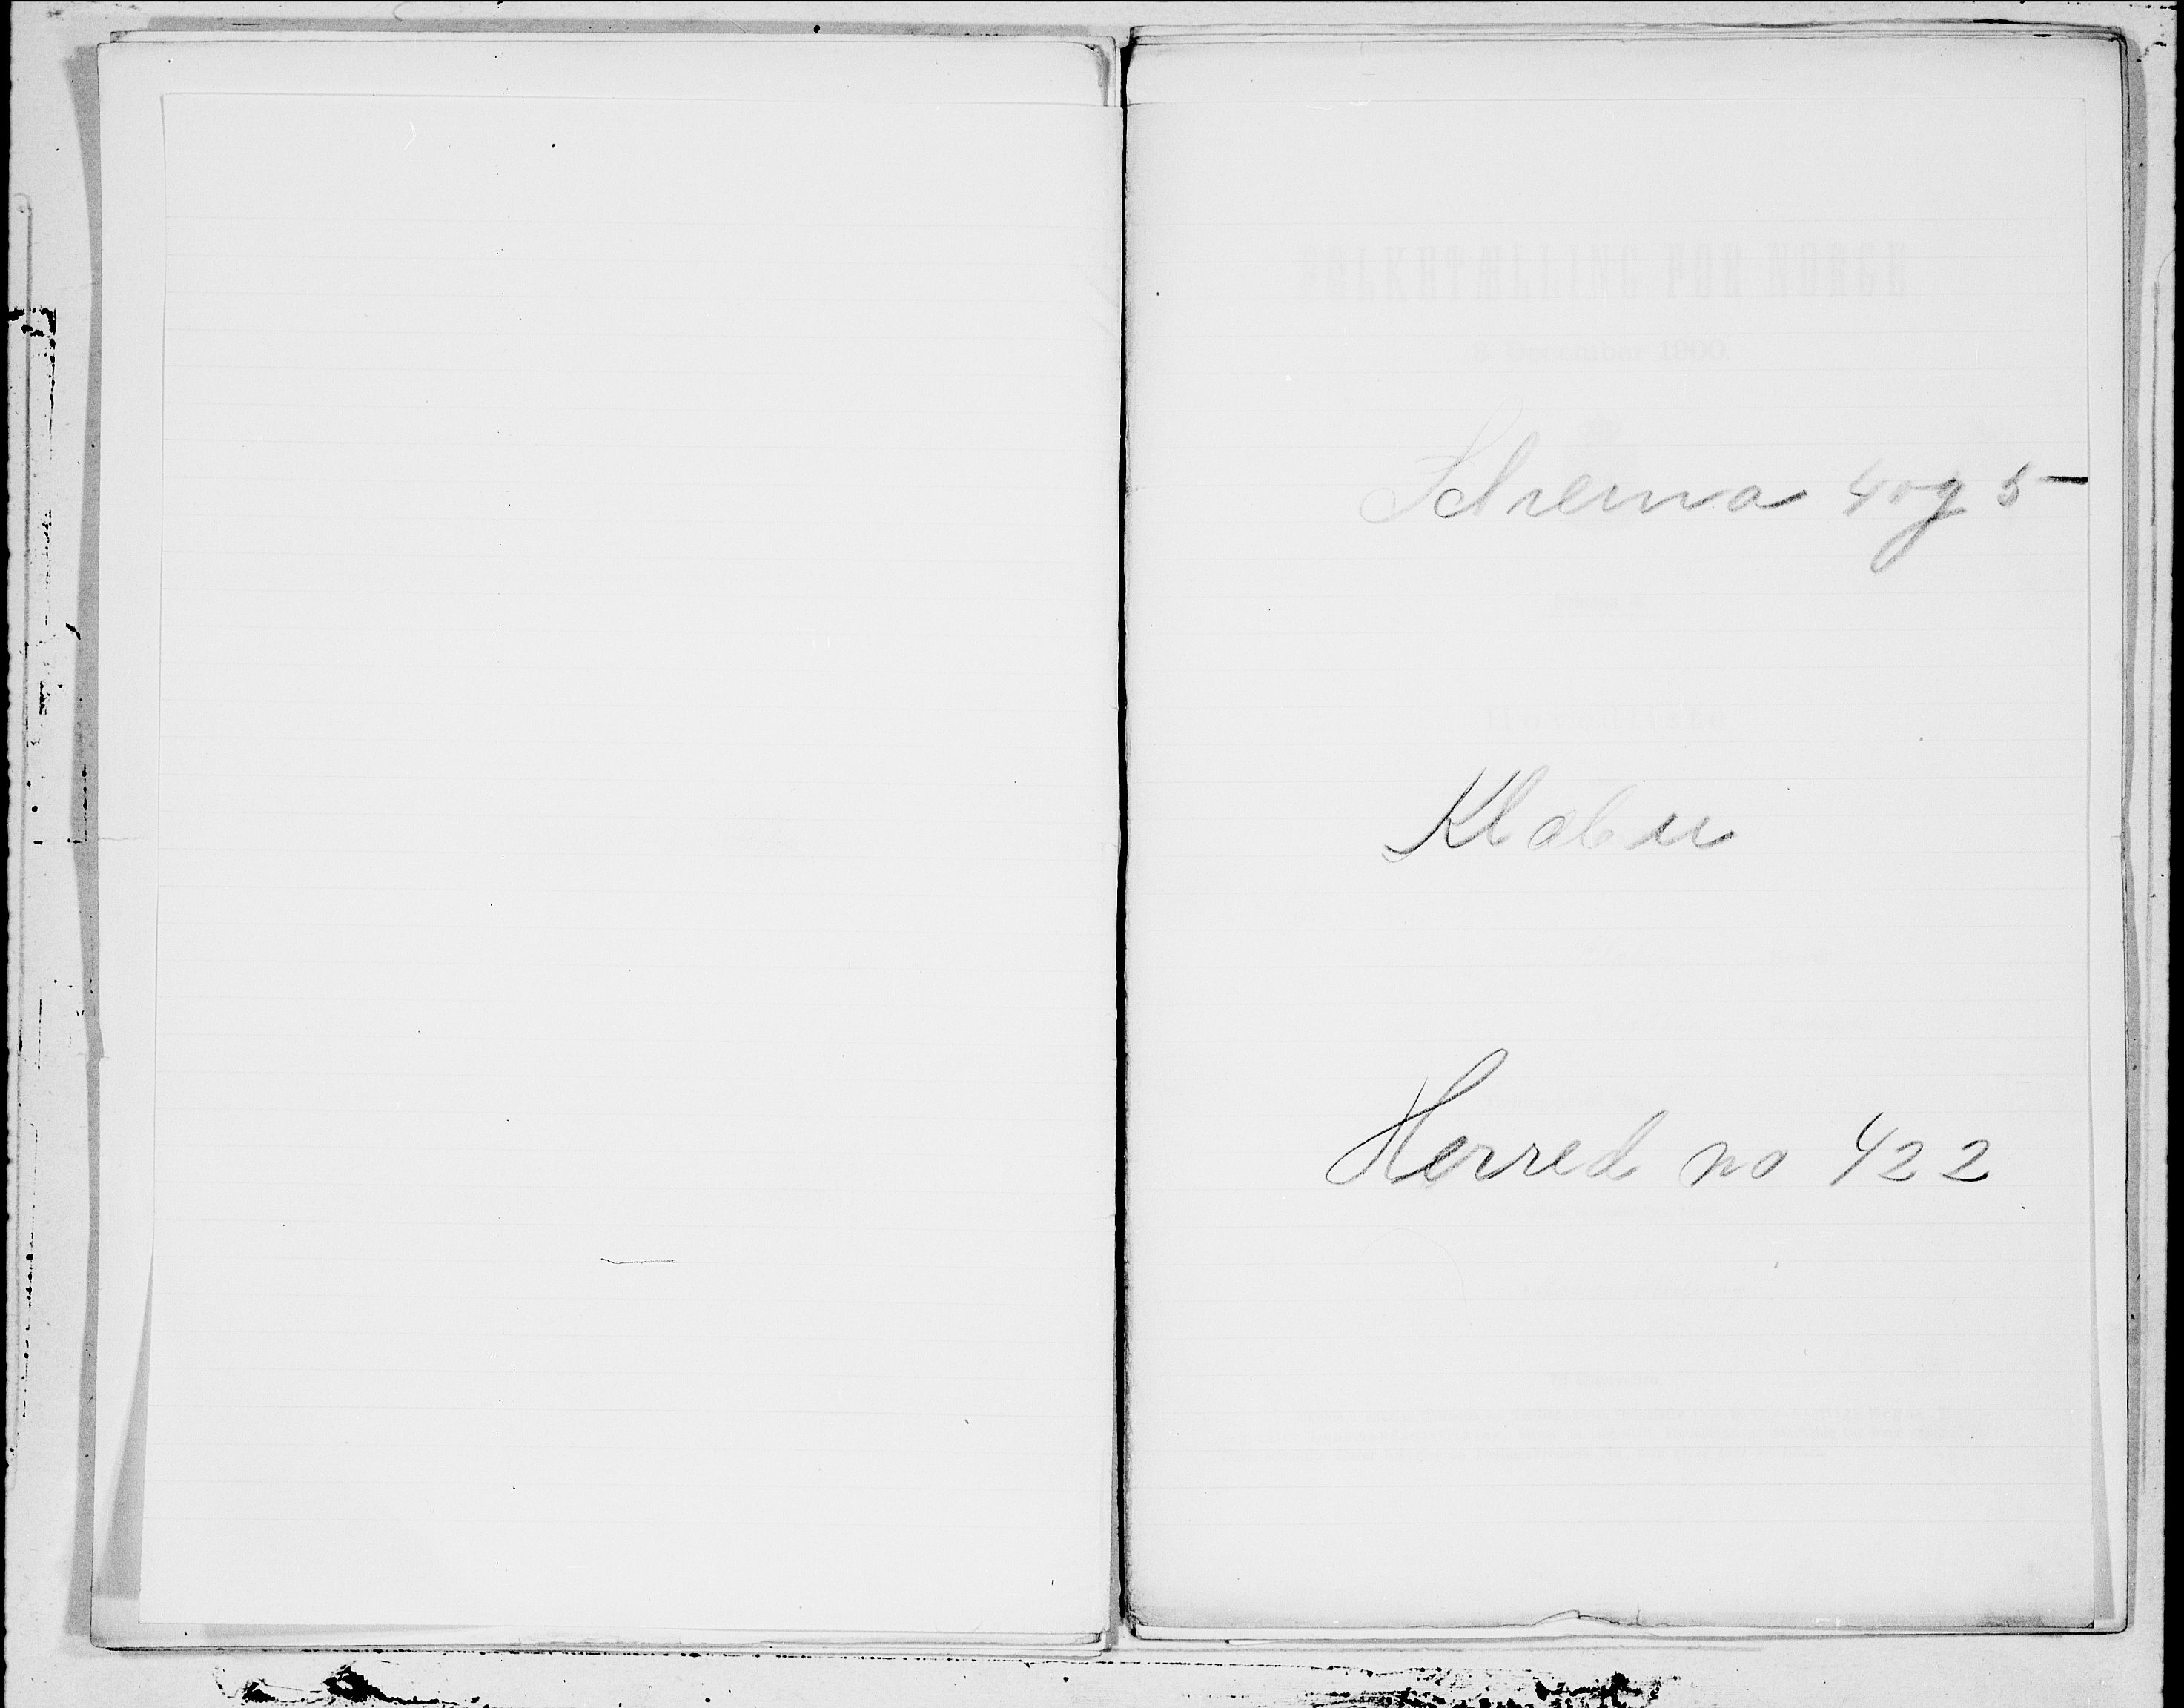 FOLKETÆLLING FOR NORGE
3 December 1900
Schema 4 og 5
Hovedliste
Klæbu
Herred no 422